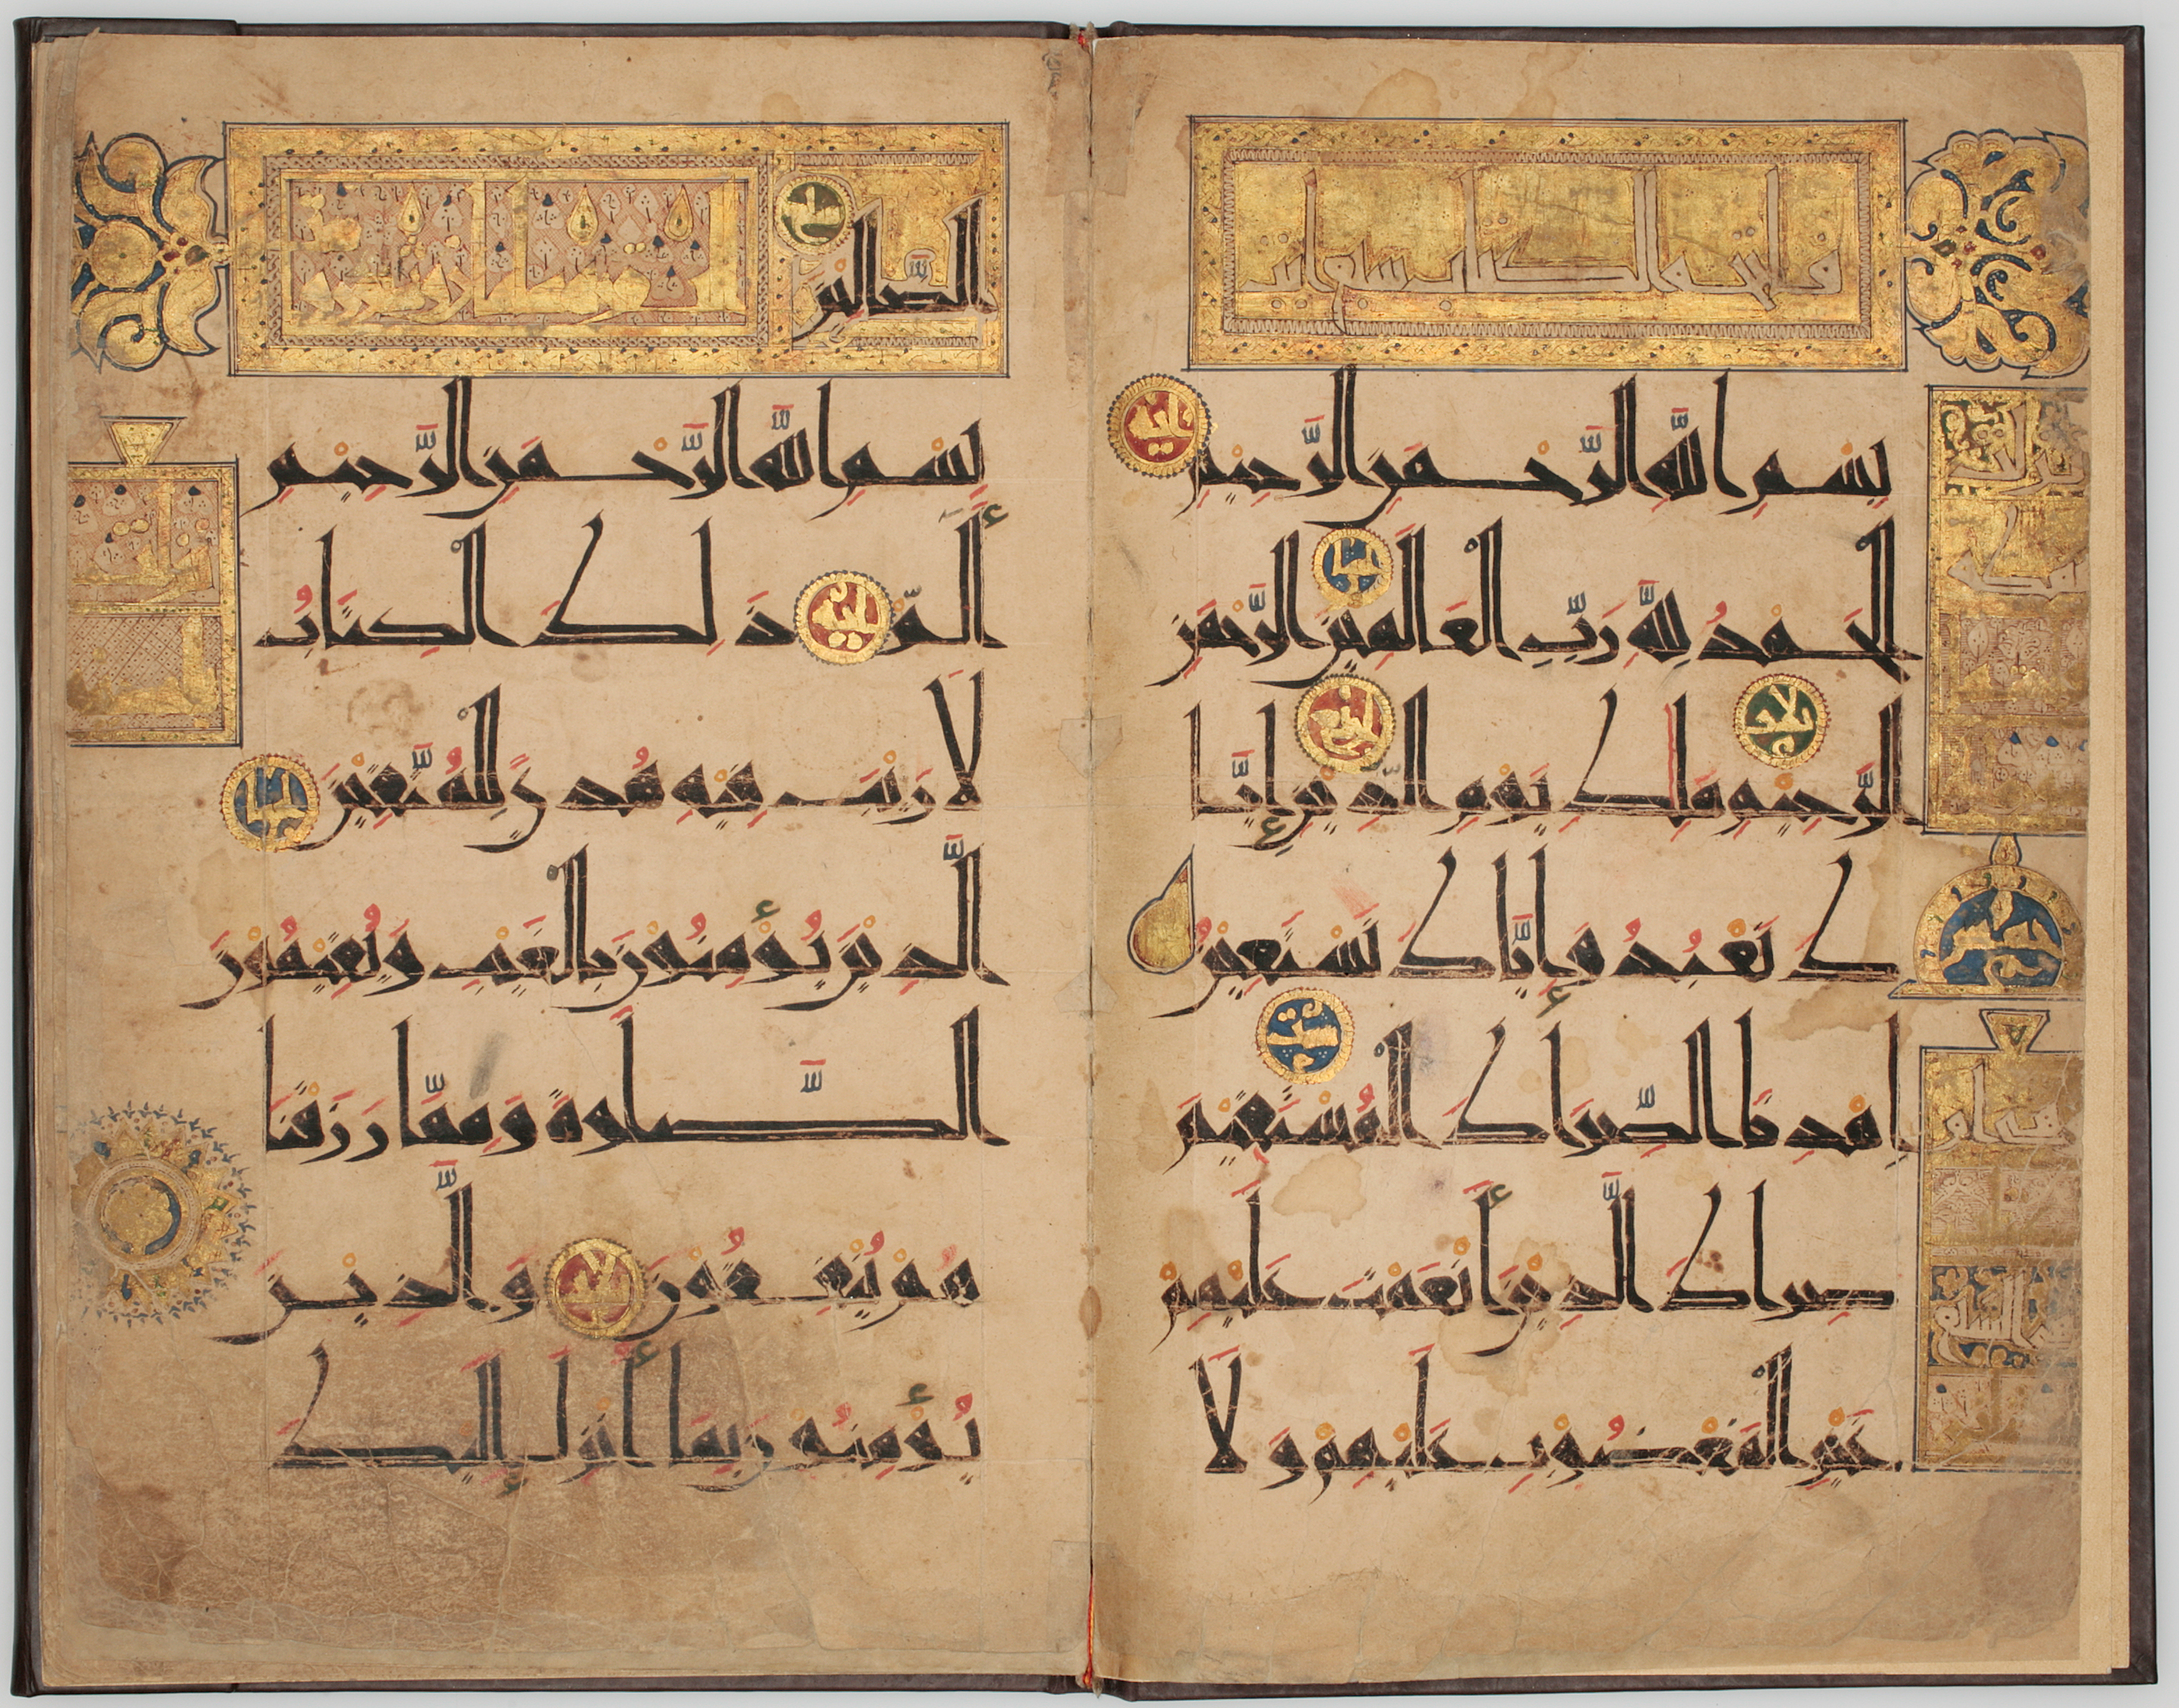 فاتحة الكتاب سبع آيات
بِسْمِ اللَّهِ الرَّحْمَنِ الرَّحِيمِ
الْحَمْدُ لِلَّهِ رَبِّ الْعَالَمِينَ الرَّحْمَنِ
الرَّحِيمِ مَلِكِ يَوْمِ الدِّينِ إِيَّا
كَ نَعْبُدُ وَإِيَّاكَ نَسْتَعِينُ
اِهْدِنَا الصِّرَاطَ الْمُسْتَقِيمَ
صِرَاطَ الَّذِينَ أَنْعَمْتَ عَلَيْهِمْ
غَيْرِ الْمَغْضُوبِ عَلَيْهِمْ وَلَا
الضَّالِّينَ
بِسْمِ اللَّهِ الرَّحْمَنِ الرَّحِيمِ
الم ذَلِكَ الْكِتَابُ
لَا رَيْبَ فِيهِ هُدًى لِلْمُتَّقِينَ
الَّذِينَ يُؤْمِنُونَ بِالْغَيْبِ وَيُقِيمُونَ
الصَّلَوةَ وَمِمَّا رَزَقْنَا
هُمْ يُنْفِقُونَ وَالَّذِينَ
يُؤْمِنُونَ بِمَا أُنْزِلَ إِلَيْكَ